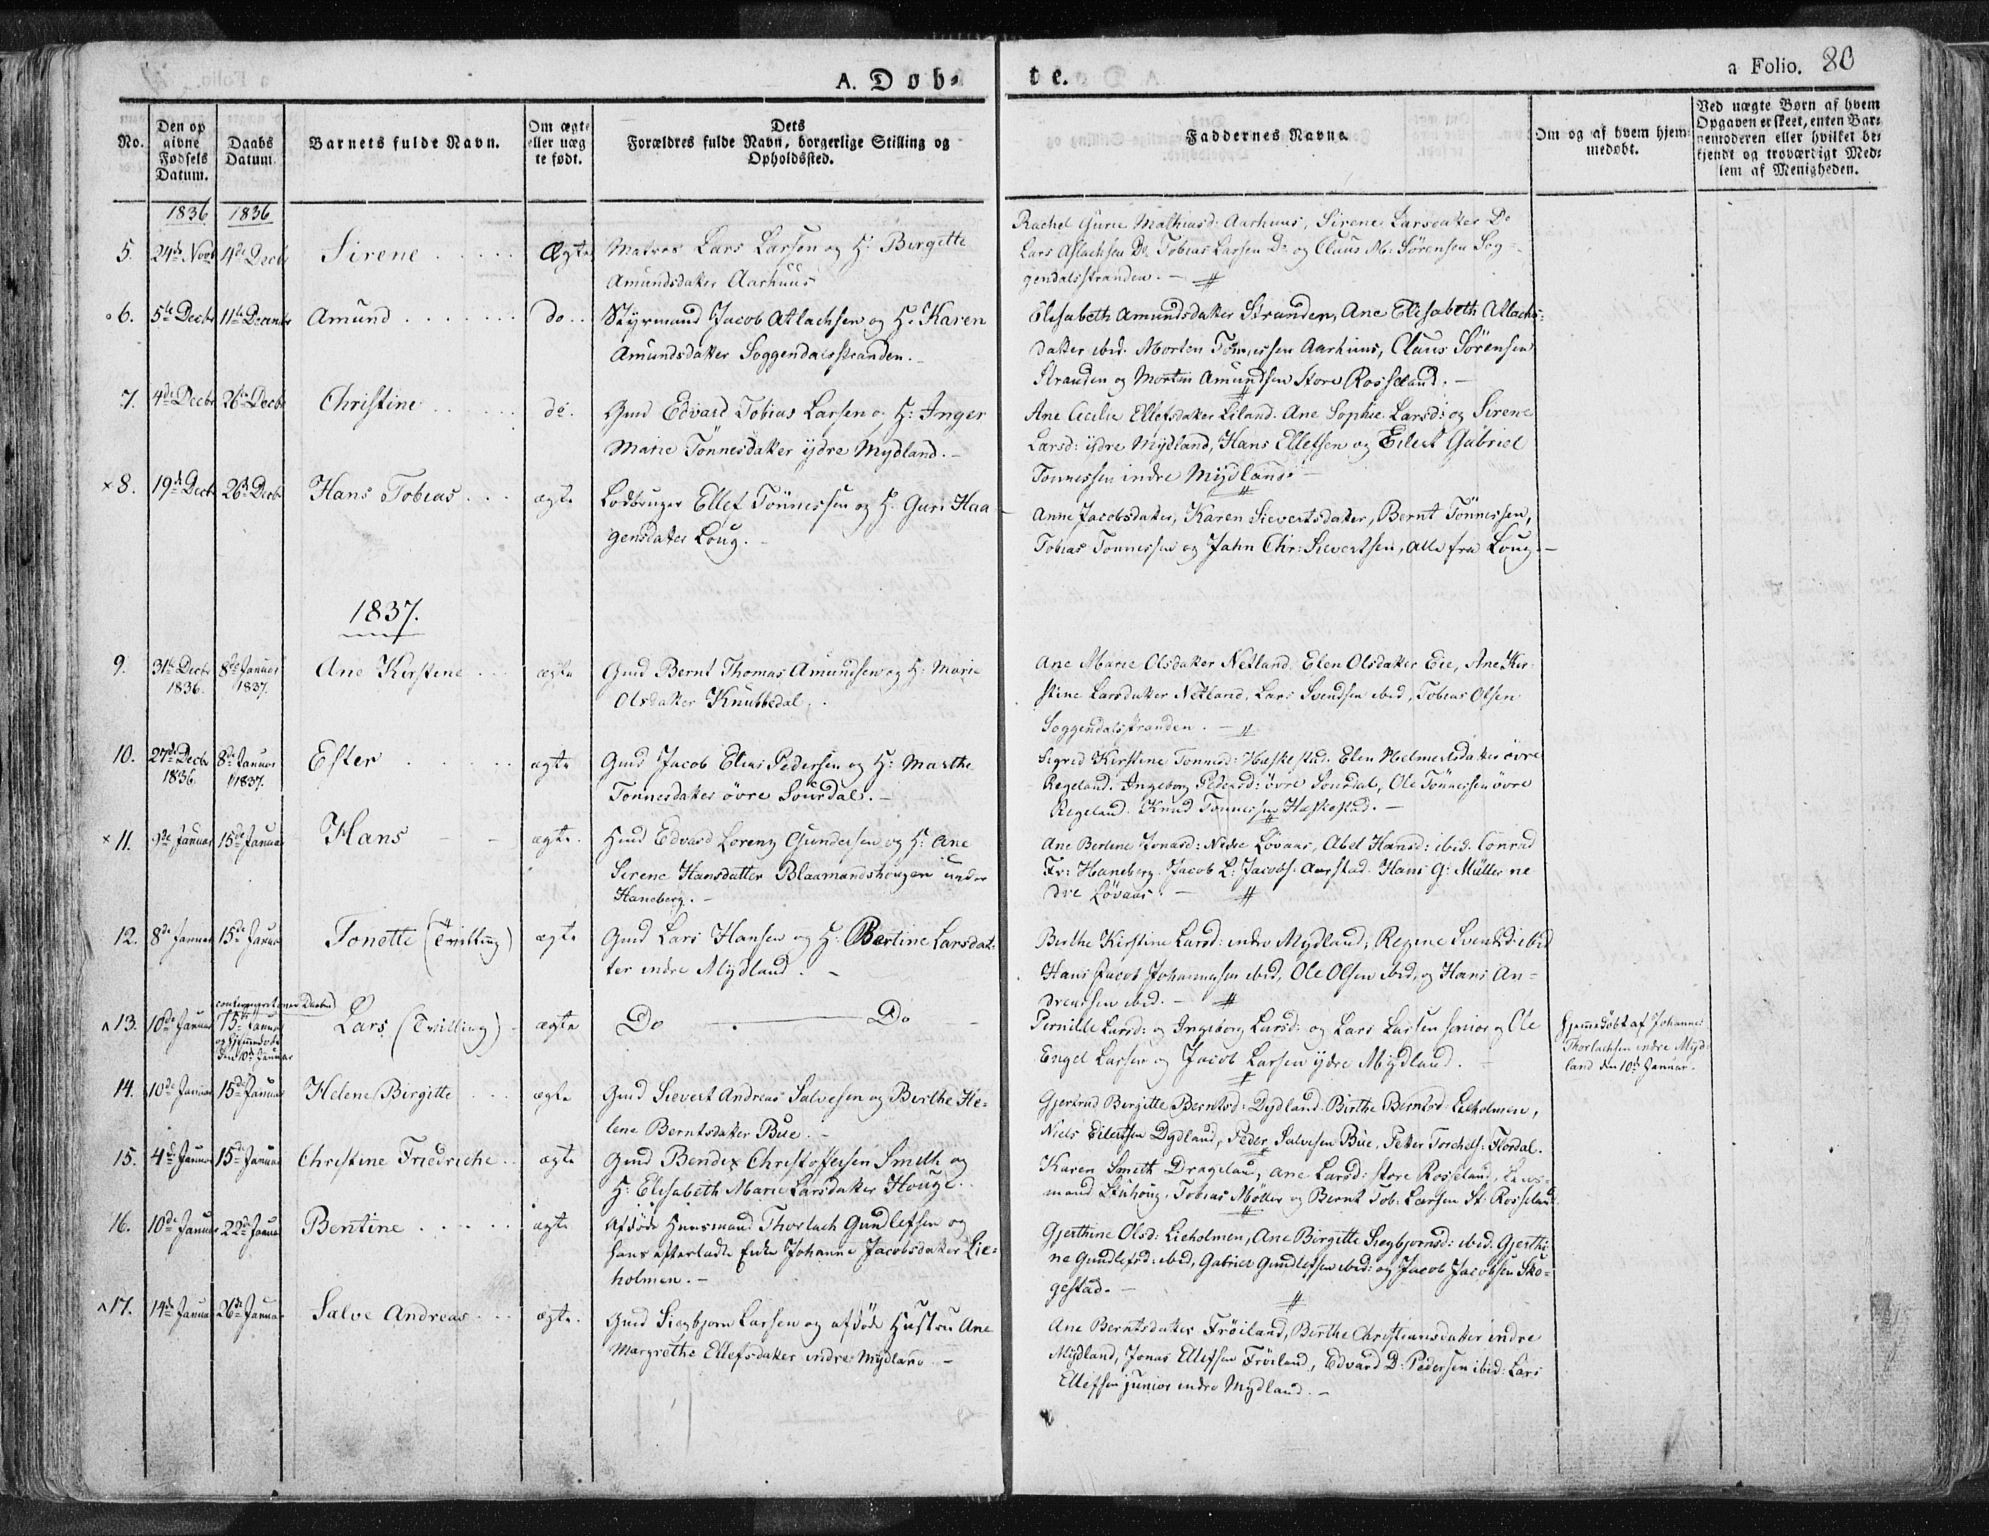 A. Døb-
te.
a Folio. 80
No.
Den op
givne
Fødsels
Datum.
Daabs
Datum.
Barnets fulde Navn.
Om ægte
eller uæg
te født.
Dets
Forældres fulde Navn, borgerlige Stilling og
Opholdssted.
Faddernes Navne.
Om og af hvem hjem-
medøbt.
Ved uægte Børn af hvem
Opgaven er skeet, enten Bar-
nemoderen eller hvilket be-
kjendt og troværdigt Med-
lem af Menigheden.
1836 1836
5. 24de Novb 4de Decbr Sirene Ægte
Matros Lars Larsen og H: Birgitte
Amundsdatter Aarhuus
Rachel Gurie Mathiasd: Aarhuus, Sirene Larsdatter Do
Lars Aslachsen Do Tobias Larsen Do og Claus M: Sørensen Sog-
gendalsstranden. -
6. 5te Decbr 11te Decembr Amund do
Styrmand Jacob Atlachsen og H. Karen
Amundsdatter Soggendalsstranden. -
Elisabeth Amundsdatter Stranden, Ane Elisabeth Atlachs-
datter ibid. Morten Tønnessen Aarhuus, Claus Sørensen
Stranden og Morten Amundsen Store Rosseland. -
7. 4de Decbr 26de Decbr Christine do.
Gmd Edvard Tobias Larsen og H: Inger
Marie Tønnesdatter ydre Mydland. -
Ane Cecilie Ellefsdatter Eiland. Ane Sophie Larsd: og Sirene
Larsd: ydre Mydland, Hans Ellefsen og Eilert Gabriel
Tønnessen indre Mydland. -
8. 19de Decbr 26de Decbr Hans Tobias ægte
Lodbruger Ellef Tønnessen og H. Guri Haa-
gensdatter Loug. -
Anne Jacobsdatter, Karen Sievertsdatter, Bernt Tønnessen,
Tobias Tønnessen og Jahn Chr: Sievertsen, alle fra Loug. -
1837.
9. 31te Decbr 8de Januar Ane Kirstine ægte
1836. 1837.
Gmd Bernt Thomas Amundsen og H. Marie
Olsdatter Knubbedal.
Ane Marie Olsdatter Netland, Elen Olsdatter Eie, Ane Kir-
stine Larsdatter Netland, Lars Svendsen ibid, Tobias Olsen
Soggendalsstranden. -
10. 27de Decbr 8de Januar Ester ægte
1836. 1837.
Gmd Jacob Elias Pedersen og H: Marthe
Tønnesdatter øvre Sourdal. -
Sigrid Kirstine Tønnesd: Hæskestad. Elen Helmersdatter øvre
Regeland. Ingeborg Pedersd: øvre Sourdal, Ole Tønnessen øvre
Regeland. Knud Tønnessen Hæskestad. -
11. 9de Januar 15de Januar Hans ægte.
Hmd Edvard Lorenz Gundersen og H: Ane
Sirene Hansdatter Blaamandshougen under
Haneberg. -
Ane Bertine Jonasd: Nedre Løvaas, Abel Hansd: ibid. Conrad
Fr: Haneberg. Jacob L: Jacobs. Aarstad. Hans G: Müller ne
dre Løvaas. -
12. 8de Januar 15de Januar Tonette (Tvilling) ægte
Gmd Lars Hansen og H: Bertine Larsdat-
ter indre Mydland. -
Berthe Kirstine Larsd: indre Mydland, Regine Svendsd: ibid
Hans Jacob Johannessen ibid, Ole Olsen ibid, og Hans An-
dreassen ibid. -
13. 10de Januar 15de Januar Lars (Tvilling) ægte
og hjemmedøbt
den 10de Januar
Do Do
Pernille Larsd: og Ingeborg Larsd: og Lars Larsen senior og Ole
Engel Larsen og Jacob Larsen ydre Mydland.
Hjemmedøbt af Johannes
Thorlachsen indre Myd-
land den 10de Januar.
14. 10de Januar 15de Januar Helene Birgitte ægte
Gmd Sievert Andreas Salvesen og Berthe He-
lene Berntsdatter Bue. -
Gjertrud Birgitte Berntsd: Dydland. Birthe Berntsd: Lieholmen,
Niels Eilertsen Dydland, Peder Salvesen Bue, Petter Torchels: Flordal.
15. 4de Januar 15de Januar Christine Friedriche ægte
Gmd Bendix Christoffersen Smith og
H: Elisabeth Marie Larsdatter Houge.
Karen Smith Drageland, Ane Larsd: store Rosseland, Lens-
mand Stuhoug, Tobias Møller og Bernt Tob. Larsen St. Rosseland
16. 10de Januar 22de Januar Bentine ægte
Afdøde Huusmand Thorlach Gundlefsen og
hans efterladte Enke Johanne Jacobsdatter Lie-
holmen. -
Gjerthine Olsd: Lieholmen, Ane Birgitte Siegbjørnsd: ibid. Gjerthi-
ne Gundlefsd: ibid, Gabriel Gundlefsen ibid: og Jacob Jacobsen Sko-
gestad. -
17. 14de Januar 26de Januar Salve Andreas ægte.
Gmd Siegbjørn Larsen og afdøde Hustru Ane
Margrethe Ellefsdatter indre Mydland. -
Ane Berntsdatter Frøiland, Berthe Christiansdatter indre
Mydland, Jonas Ellefsen Frøiland, Edvard D: Pedersen ibid: Lars
Ellefsen junior indre Mydland. -